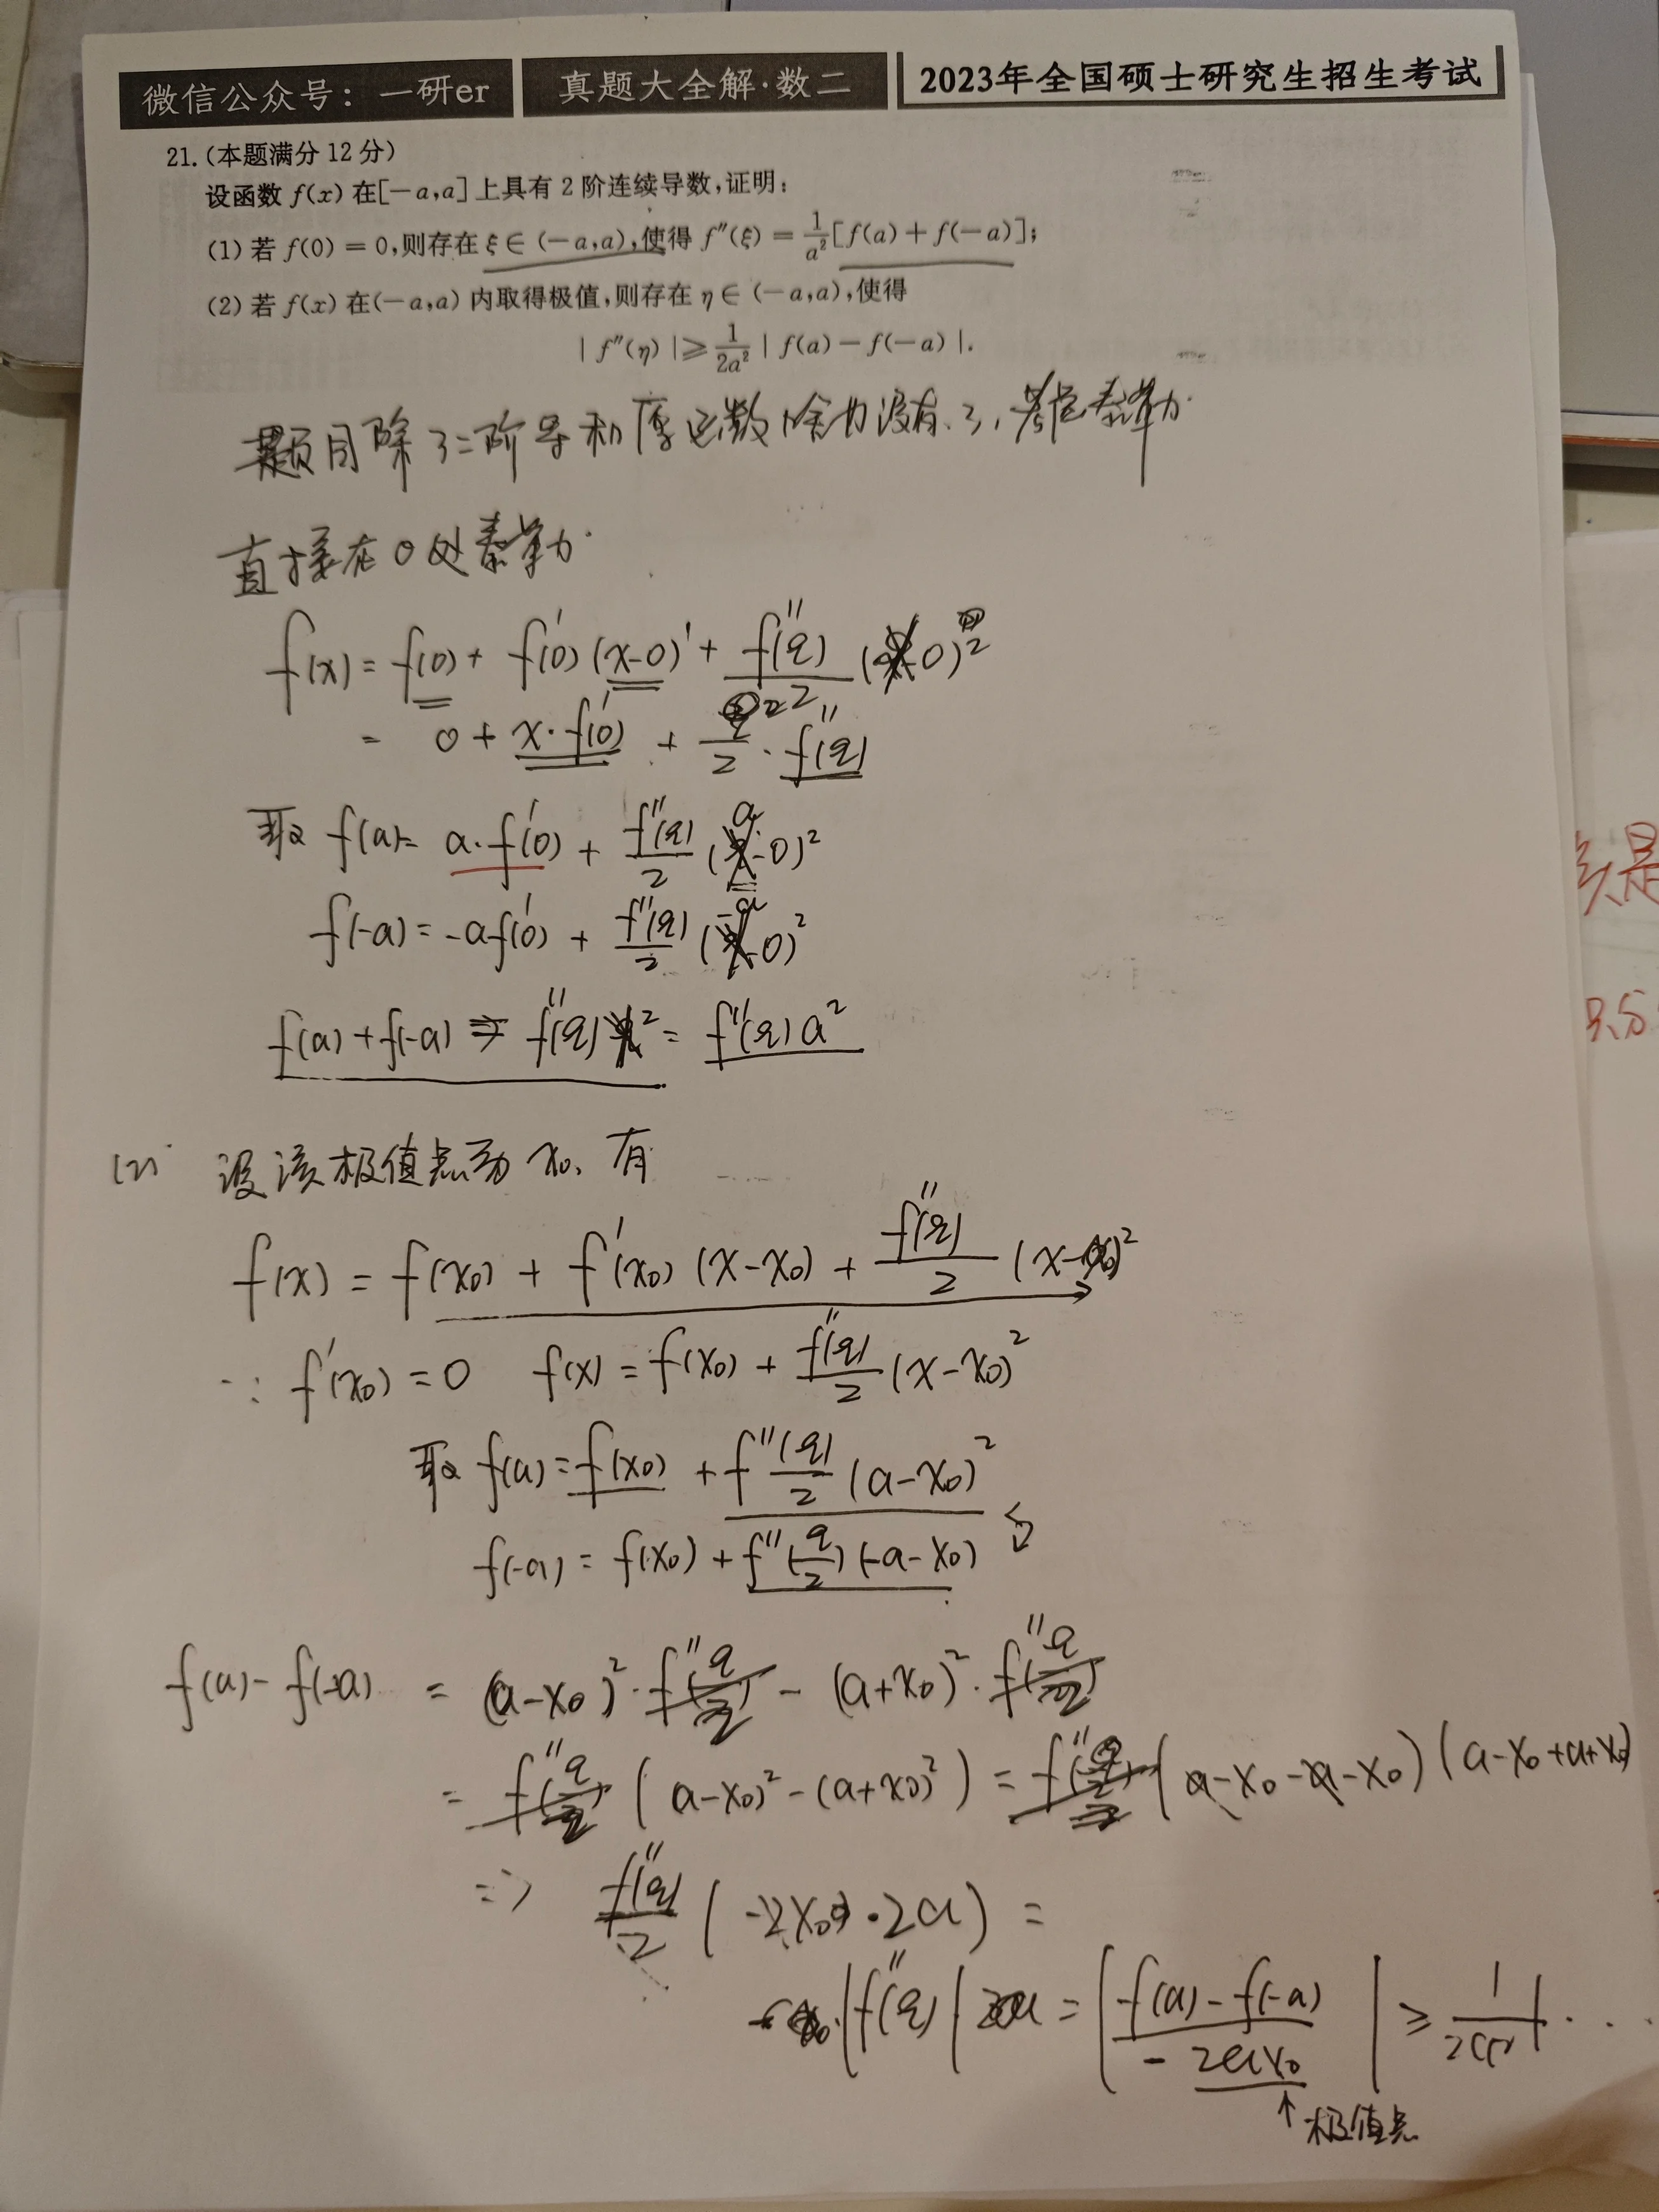 微信公众号：一研er 真题大全解·数二 2023年全国硕士研究生招生考试
21.(本题满分 12 分)
设函数 f(x) 在[-a,a]上具有 2 阶连续导数,证明:
(1) 若 f(0) = 0,则存在 ξ∈(-a,a),使得 f″(ξ) = 1/a²[f(a)+f(-a)];
(2) 若 f(x) 在(-a,a) 内取得极值,则存在 η∈(-a,a),使得
|f″(η)|≥1/2a²|f(a)-f(-a)|.
题目除了二阶导和 函数啥也没有了,考虑泰勒
直接在0处泰勒
f(x) = f(0) + f'(0)(x-0)' + f''(ξ)/2 (x-0)²
= 0 + x·f'(0) + /2 · f''(ξ)
取 f(a)= a·f'(0) + f''(ξ)/2 (a-0)²
f(-a) = -af'(0) + f''(ξ)/2 (-a-0)²
f(a)+f(-a) = f''(ξ) ² = f''(ξ)a²
(2) 设该极值点为 x₀, 有
f(x) = f(x₀) + f'(x₀)(x-x₀) + f''(ξ)/2 (x-x₀)²
∵ f'(x₀) = 0 f(x) = f(x₀) + f''(ξ)/2 (x-x₀)²
取 f(a) = f(x₀) + f''(ξ)/2 (a-x₀)²
f(-a) = f(x₀) + f''(ξ/2)(-a-x₀)
f(a) - f(-a) = (a-x₀)²·f''(ξ/2) - (a+x₀)²·f''(ξ/2)
= f''(ξ/2) (a-x₀)²-(a+x₀)²) = f''(ξ/2) (a-x₀-a-x₀)(a-x₀+a+x₀)
=> f''(ξ)/2 (-2x₀·2a) =
|f''(ξ)| = |f(a)-f(-a)/-2ax₀| ≥
极值点
是